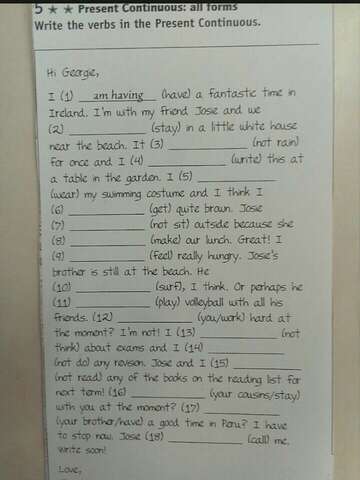 5 ★ ★ Present Continuous: all forms
Write the verbs in the Present Continuous.
Hi Georgie,
I (1) am having (have) a fantastic time in
Ireland. I'm with my friend Josie and we
(2) ____________ (stay) in a little white house
near the beach. It (3) ____________ (not rain)
for once and I (4) ____________ (write) this at
a table in the garden. I (5) ____________
(wear) my swimming costume and I think I
(6) ____________ (get) quite brown. Josie
(7) ____________ (not sit) outside because she
(8) ____________ (make) our lunch. Great! I
(9) ____________ (feel) really hungry. Josie's
brother is still at the beach. He
(10) ____________ (surf), I think. Or perhaps he
(11) ____________ (play) volleyball with all his
friends. (12) ____________ (you/work) hard at
the moment? I'm not! I (13) ____________ (not
think) about exams and I (14) ____________
(not do) any revision. Josie and I (15) ____________
(not read) any of the books on the reading list for
next term! (16) ____________ (your cousins/stay)
with you at the moment? (17) ____________
(your brother/have) a good time in Peru? I have
to stop now. Josie (18) ____________ (call) me.
Write soon!
Love,